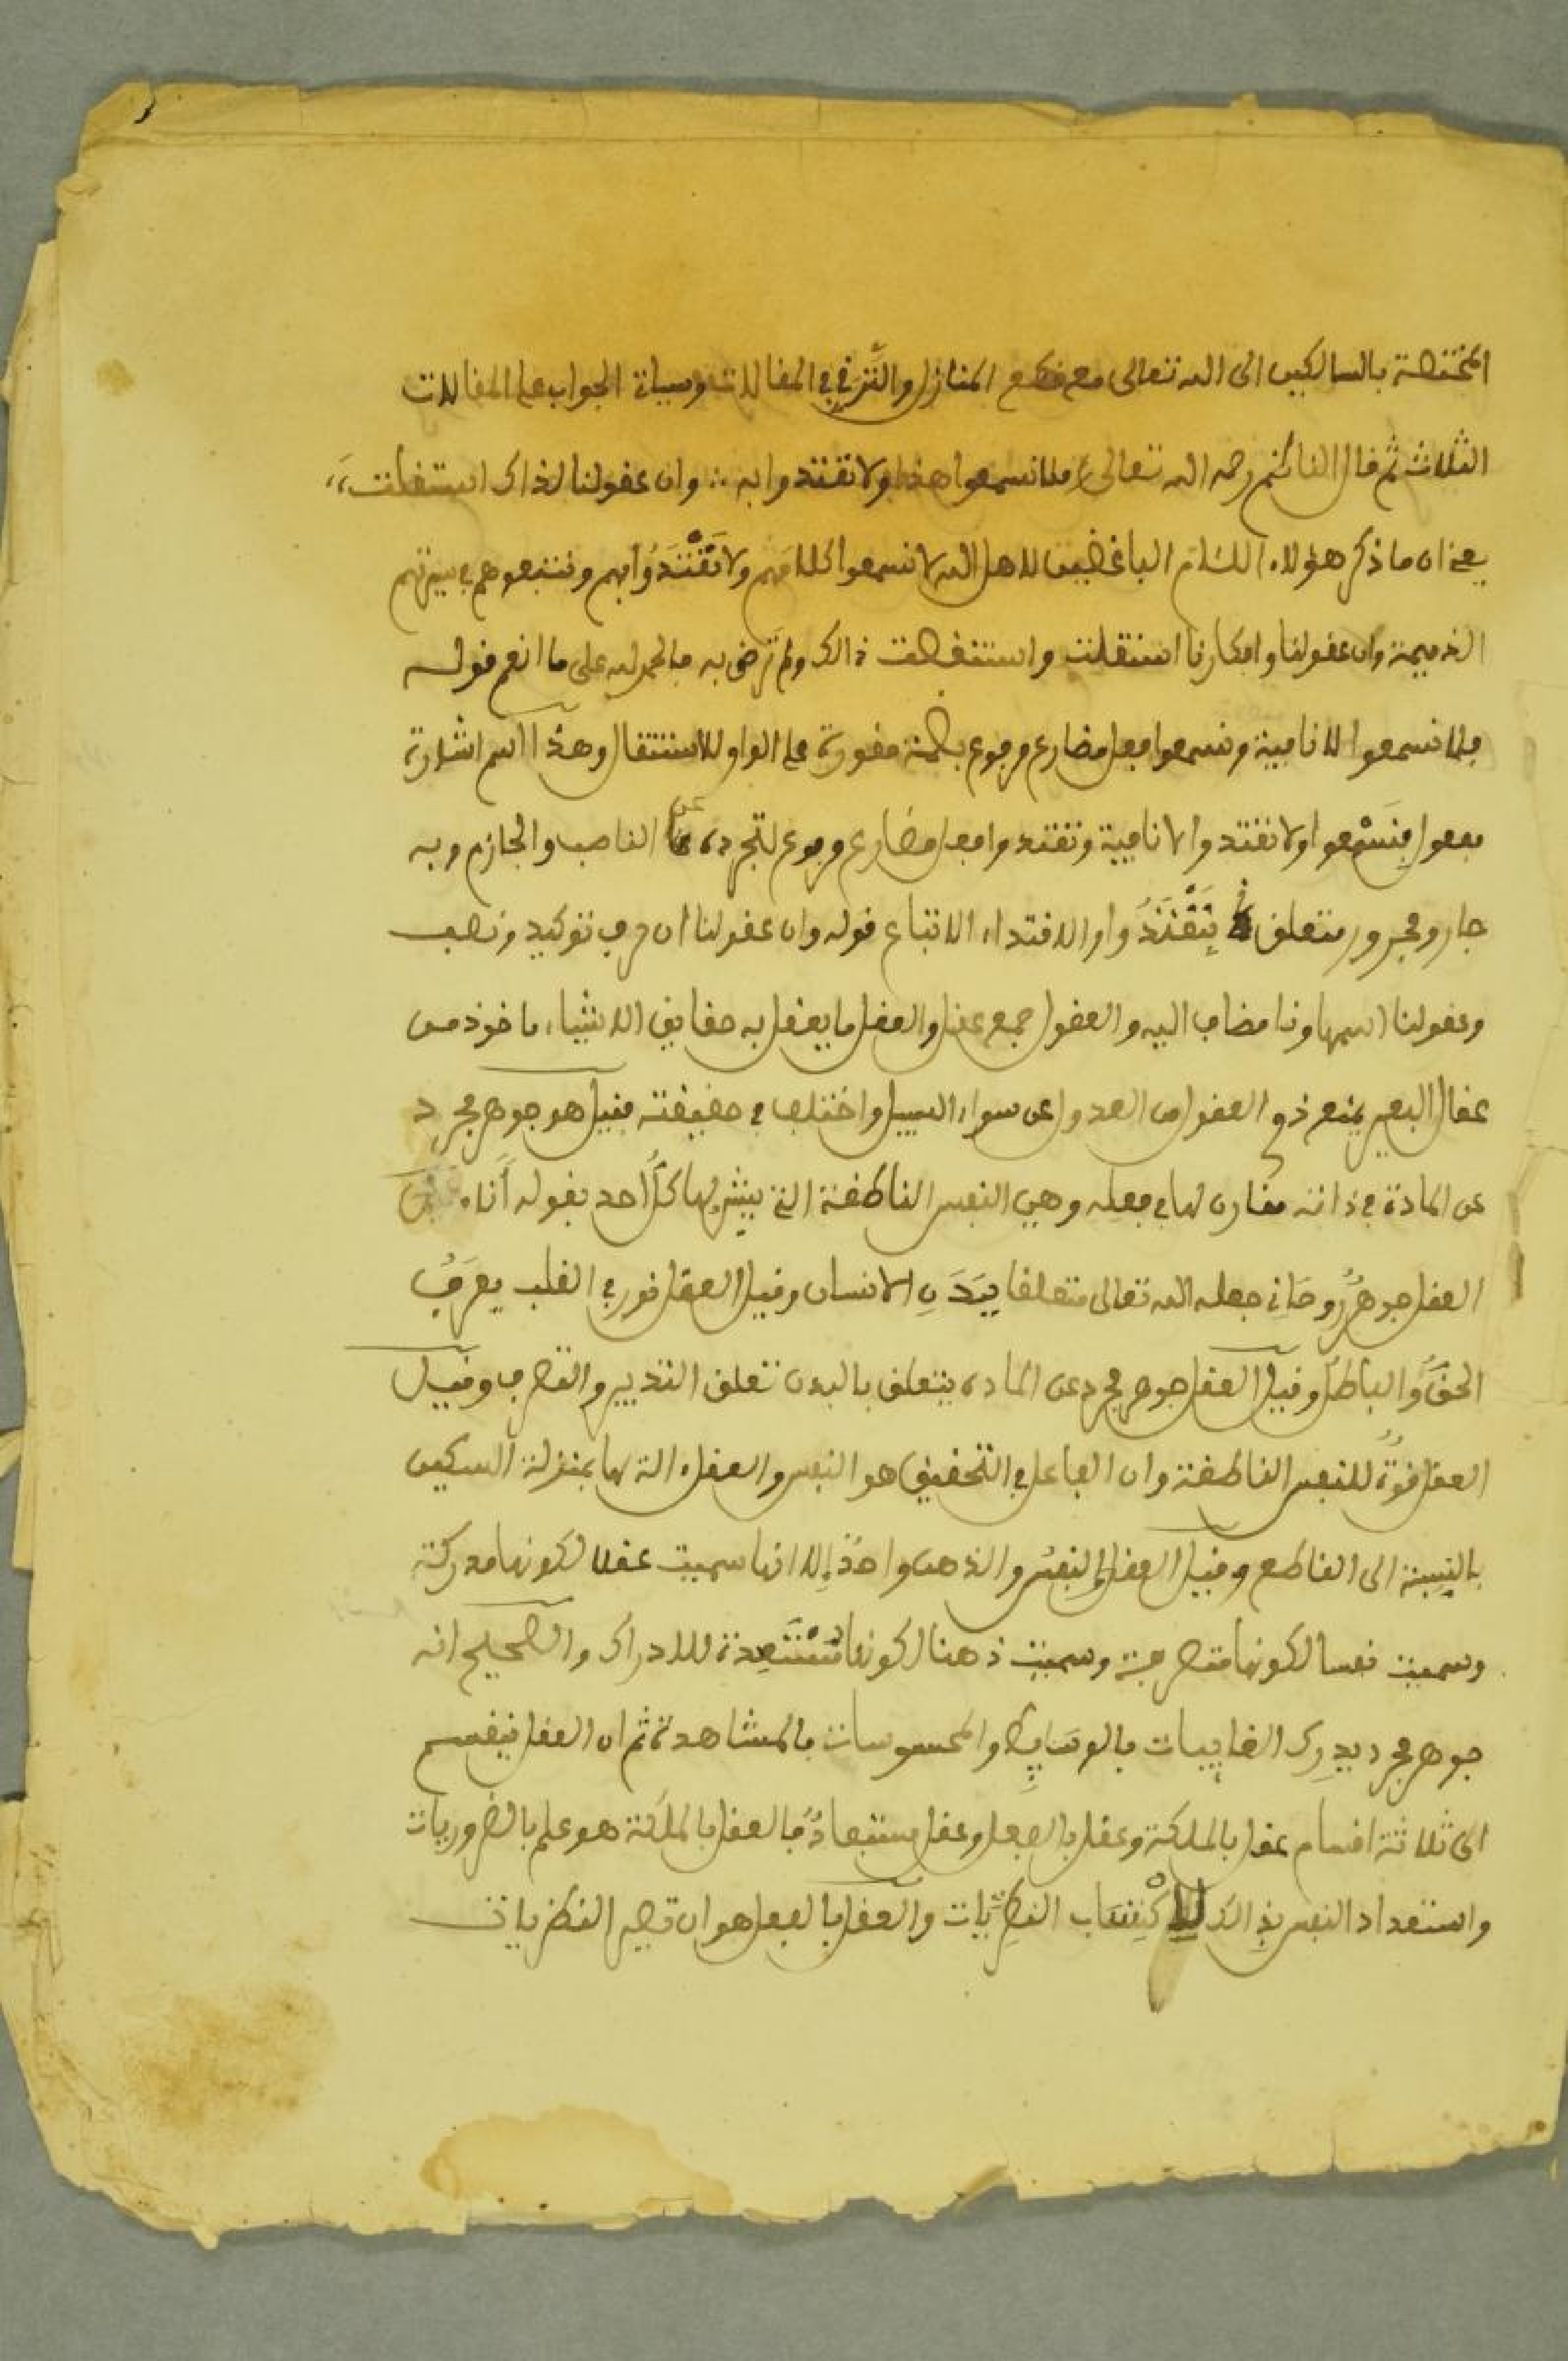 المختصة بالسالكين الى الله تعالى مع قطع المنازل والترقي في المقالات وسياتي الجواب على المقالات
الثلاث ثم قال الناظم رحمه الله تعالى فلا تسمعوا هذا ولا تقتدوا به وان عقولنا لذاك استثقلت
يعني ان ما ذكر هؤلاء اللئام الباغضين لاهل الله لا تسمعوا كلامهم ولا تَقْتَدُوا بهم وتتبعوهم في سيرتهم
الذميمة وان عقولنا وافكارنا استثقلت واستنقصت ذالك ولم ترض به فالحمد لله على ما انعم قوله
فلا تسمعوا لا نافية وتسمعوا فعل مضارع مرفوع بضمة مقدرة على الواو للاستثقال وهذا اسم اشارة
مفعول بتسمعوا ولا تقتدوا لا نافية وتقتدوا فعل مضارع مرفوع لتجرده عن الناصب والجازم وبه
جار ومجرور متعلق بِتَقْتَدُوا والاقتداء الاتباع قوله وان عقولنا ان حرف توكيد ونصب
وعقولنا اسمها ونا مضاف اليه والعقول جمع عقل والعقل ما يعقل به حقايق الاشياء ماخوذ من
عقال البعير يمنع ذوي العقول من العدول عن سواء السبيل واختلف في حقيقته فقيل هو جوهر مجرد
عن المادة في ذاته مقارن لها في فعله وهي النفس الناطقة التي يشير لها كل احد بقوله أنا
العقل جوهر روحَانِي جعله الله تعالى متعلقا بِبَدَنِ الانسان وقيل العقل نور في القلب يعرف
الحق والباطل وقيل العقل جوهر مجرد عن المادة يتعلق بالبدن تعلق التدبير والتصرف وقيل
العقل قوة للنفس الناطقة وان الفاعل في التحقيق هو النفس والعقل ءالة لها بمنزلة السكين
بالنسبة الى القاطع وقيل العقل والنفس والذهن واحد إلا انها سميت عقلا لكونها مدركة
وسميت نفسا لكونها متصرفة وسميت ذهنا لكونها مُسْتَعِدة للادراك والصحيح انه
جوهر مجرد يدرك الغايبات بالوسايط والمحسوسات بالمشاهدة ثم ان العقل ينقسم
الى ثلاثة اقسام عقل بالملكة وعقل بالفعل وعقل مستفاد فالعقل بالملكة هو علم بالضروريات
واستعداد النفس بذالك لاكْتِسَاب النظريات والعقل بالفعل هو ان تصير النظريات